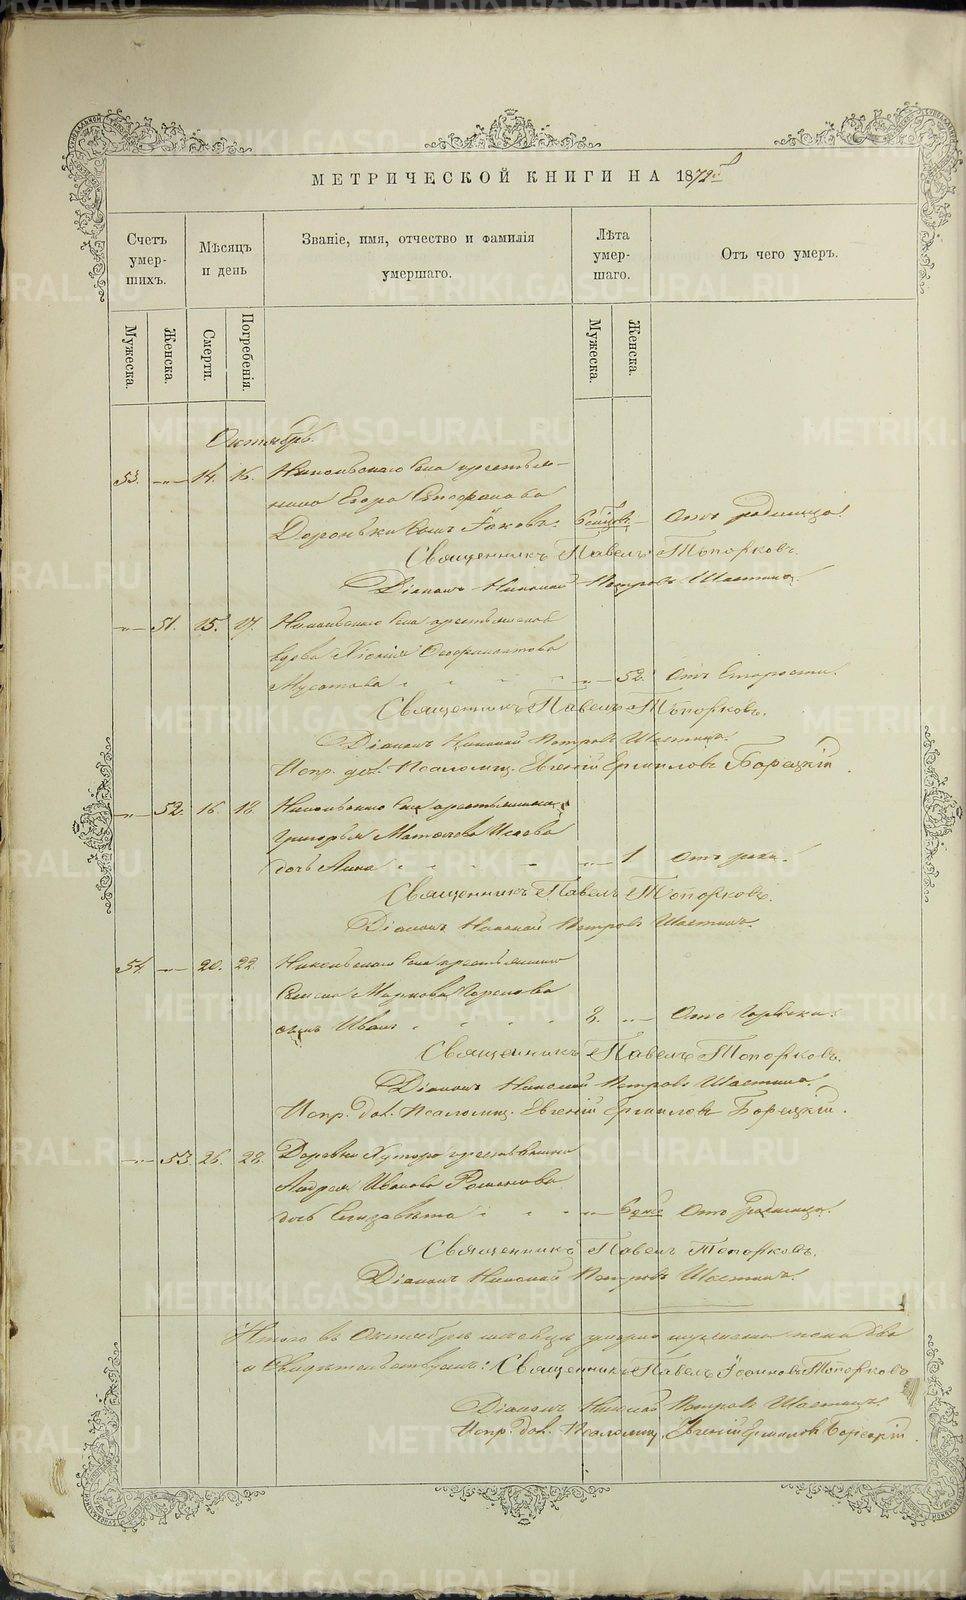 МЕТРИЧЕСКОЙ КНИГИ НА 1872й
Счетъ умер-шихъ.
Мѣсяцъ и день
Званіе, имя, отчество и фамилія умершаго.
Лѣта умер-шаго.
Отъ чего умеръ.
Мужеска.
Женска.
Смерти.
Погребенія.
Мужеска.
Женска.
Октябрь.
53. —„— 14. 16. Никольскаго села крестья-
нина Егора
сынъ Іаковъ. Отъ родимца.
Священникъ Павелъ Топорковъ.
Діаконъ Николай Петровъ Шастинъ.
—„— 51. 15. 17. Никольскаго села крестьянская
вдова
52. Отъ старости.
Священникъ Павелъ Топорковъ.
Діаконъ Николай Петровъ Шастинъ.
Испр. дол. Псаломщ. Евгеній Ермиловъ Борецкій.
—„— 52. 16. 18. Никольскаго села крестьянина
Григорья Матвѣева Исаева
дочь Анна —„— 1. Отъ
Священникъ Павелъ Топорковъ.
Діаконъ Николай Петровъ Шастинъ.
54. —„— 20. 22. Никольскаго села крестьянина
Семена Маркова
сынъ Иванъ —„— Отъ горячки.
Священникъ Павелъ Топорковъ.
Діаконъ Николай Петровъ Шастинъ.
Испр. дол. Псаломщ. Евгеній Ермиловъ Борецкій.
—„— 53. 26. 28. Деревни крестьянина
Андрея Иванова Романова
дочь Елизавета —„— Отъ родимца.
Священникъ Павелъ Топорковъ.
Діаконъ Николай Петровъ Шастинъ.
Итого въ Октябрѣ мѣсяцѣ умерло мужеска пола два
и Свидѣтельствуемъ: Священникъ Павелъ Іоанновъ Топорковъ
Діаконъ Николай Петровъ Шастинъ.
Испр. дол. Псаломщ. Евгеній Ермиловъ Борецкій.
METRIKI.GASO-URAL.RU